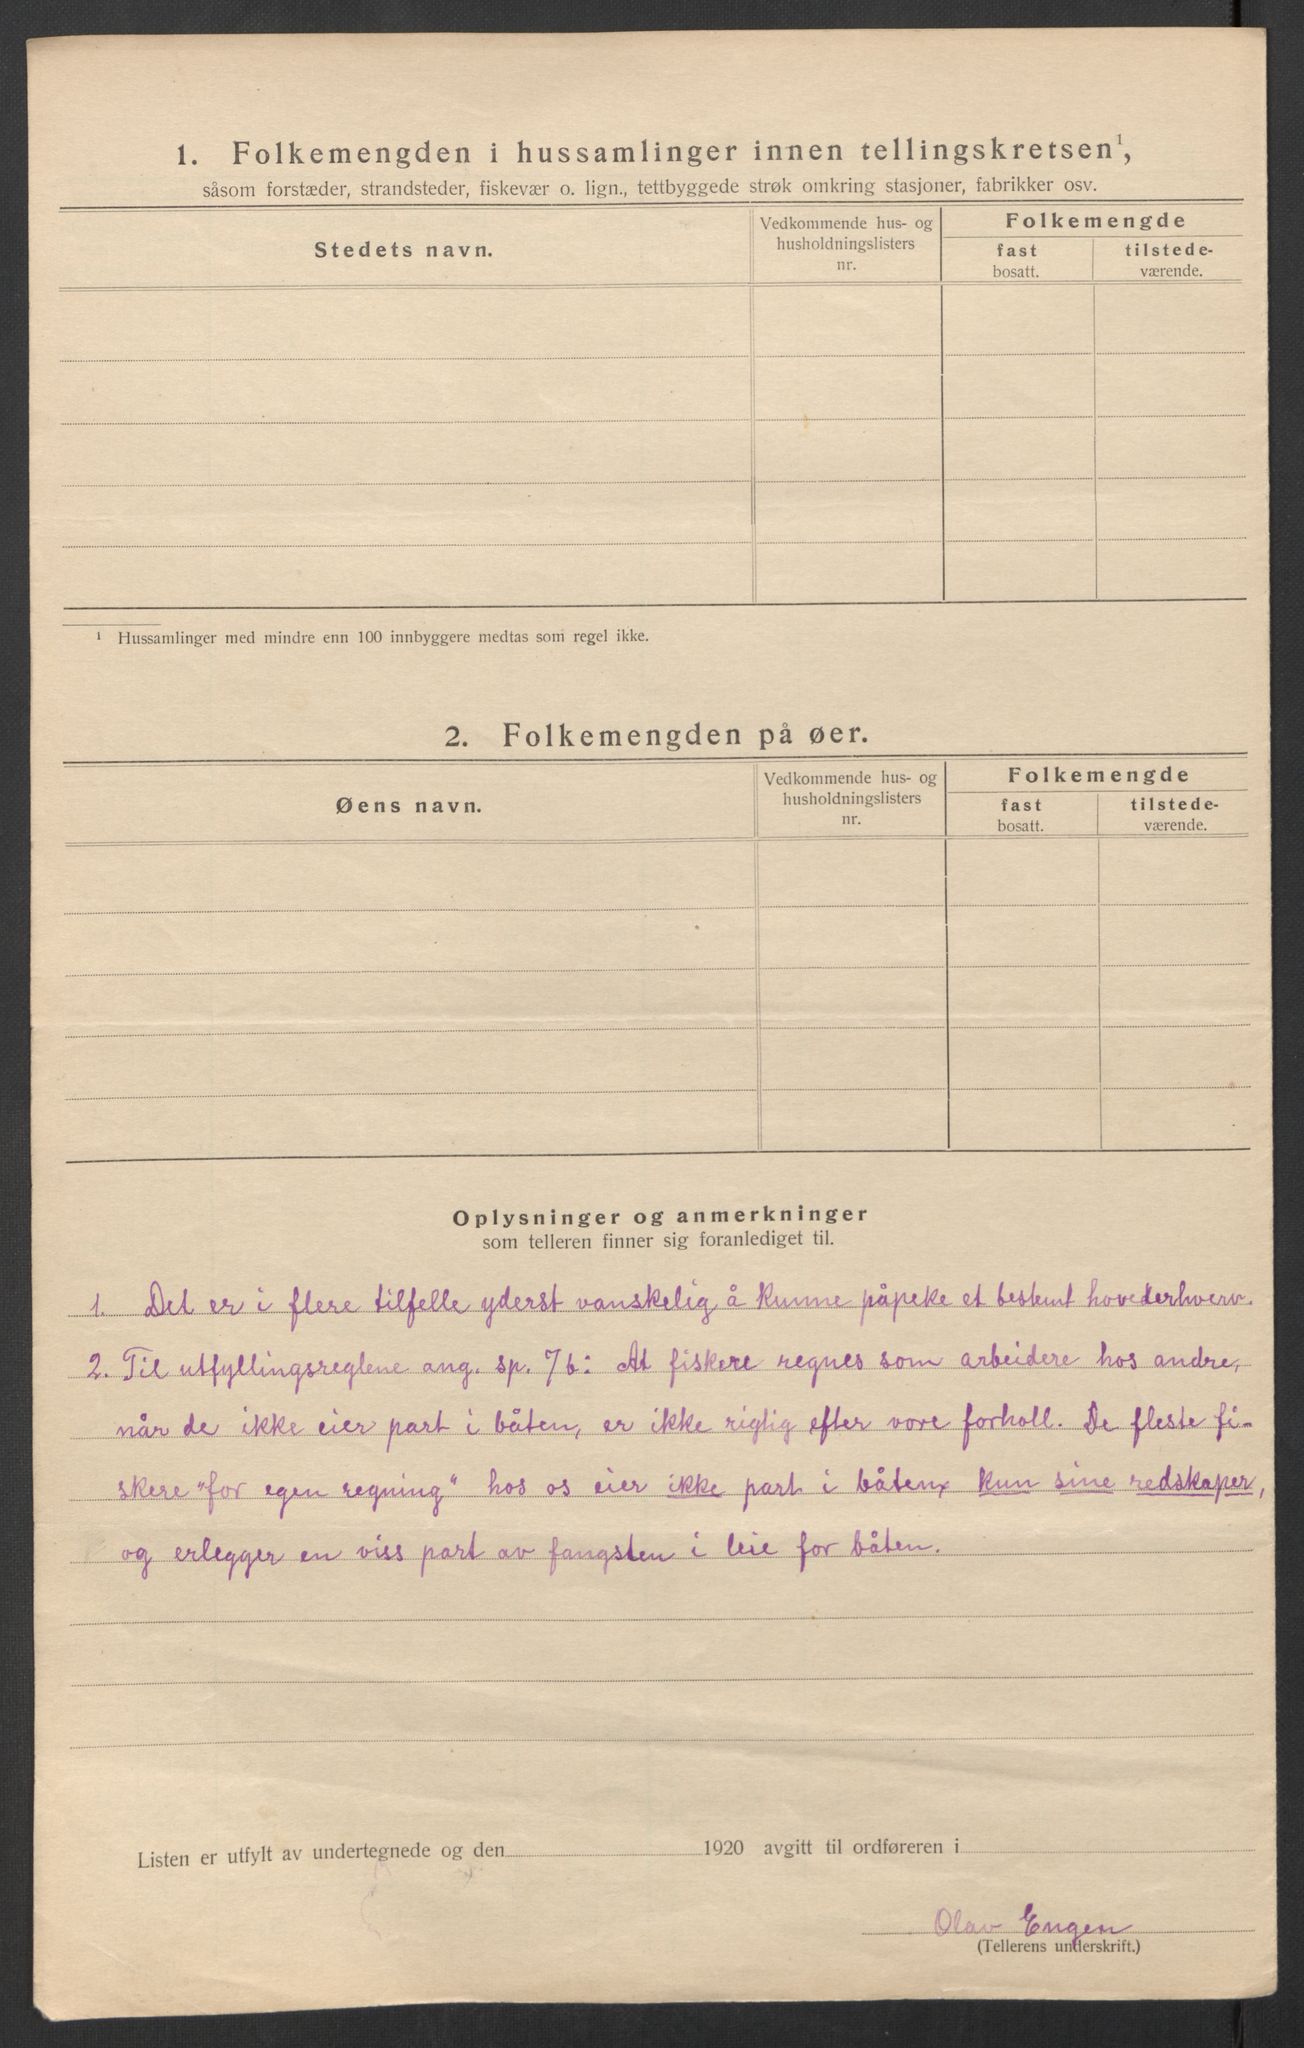 1. Folkemengden i hussamlinger innen tellingskretsen¹,
såsom forstæder, strandsteder, fiskevær o. lign., tettbyggede strøk omkring stasjoner, fabrikker osv.
Stedets navn.
Vedkommende hus- og
husholdningslisters
nr.
Folkemengde
fast
bosatt.
tilstede-
værende.
¹ Hussamlinger med mindre enn 100 innbyggere medtas som regel ikke.
2. Folkemengden på øer.
Øens navn.
Vedkommende hus- og
husholdningslisters
nr.
Folkemengde
fast
bosatt.
tilstede-
værende.
Oplysninger og anmerkninger
som telleren finner sig foranlediget til.
1. Det er i flere tilfelle yderst vanskelig å kunne påpeke et bestemt hovederhverv.
2. Til utfyllingsreglene ang. sp. 7b: At fiskere regnes som arbeidere hos andre,
når de ikke eier part i båten, er ikke rigtig efter vore forholl. De fleste fi-
skere "for egen regning" hos os eier ikke part i båten, kun sine redskaper,
og erlegger en viss part av fangsten i leie for båten.
Listen er utfylt av undertegnede og den 1920 avgitt til ordføreren i
Olav Engen
(Tellerens underskrift.)